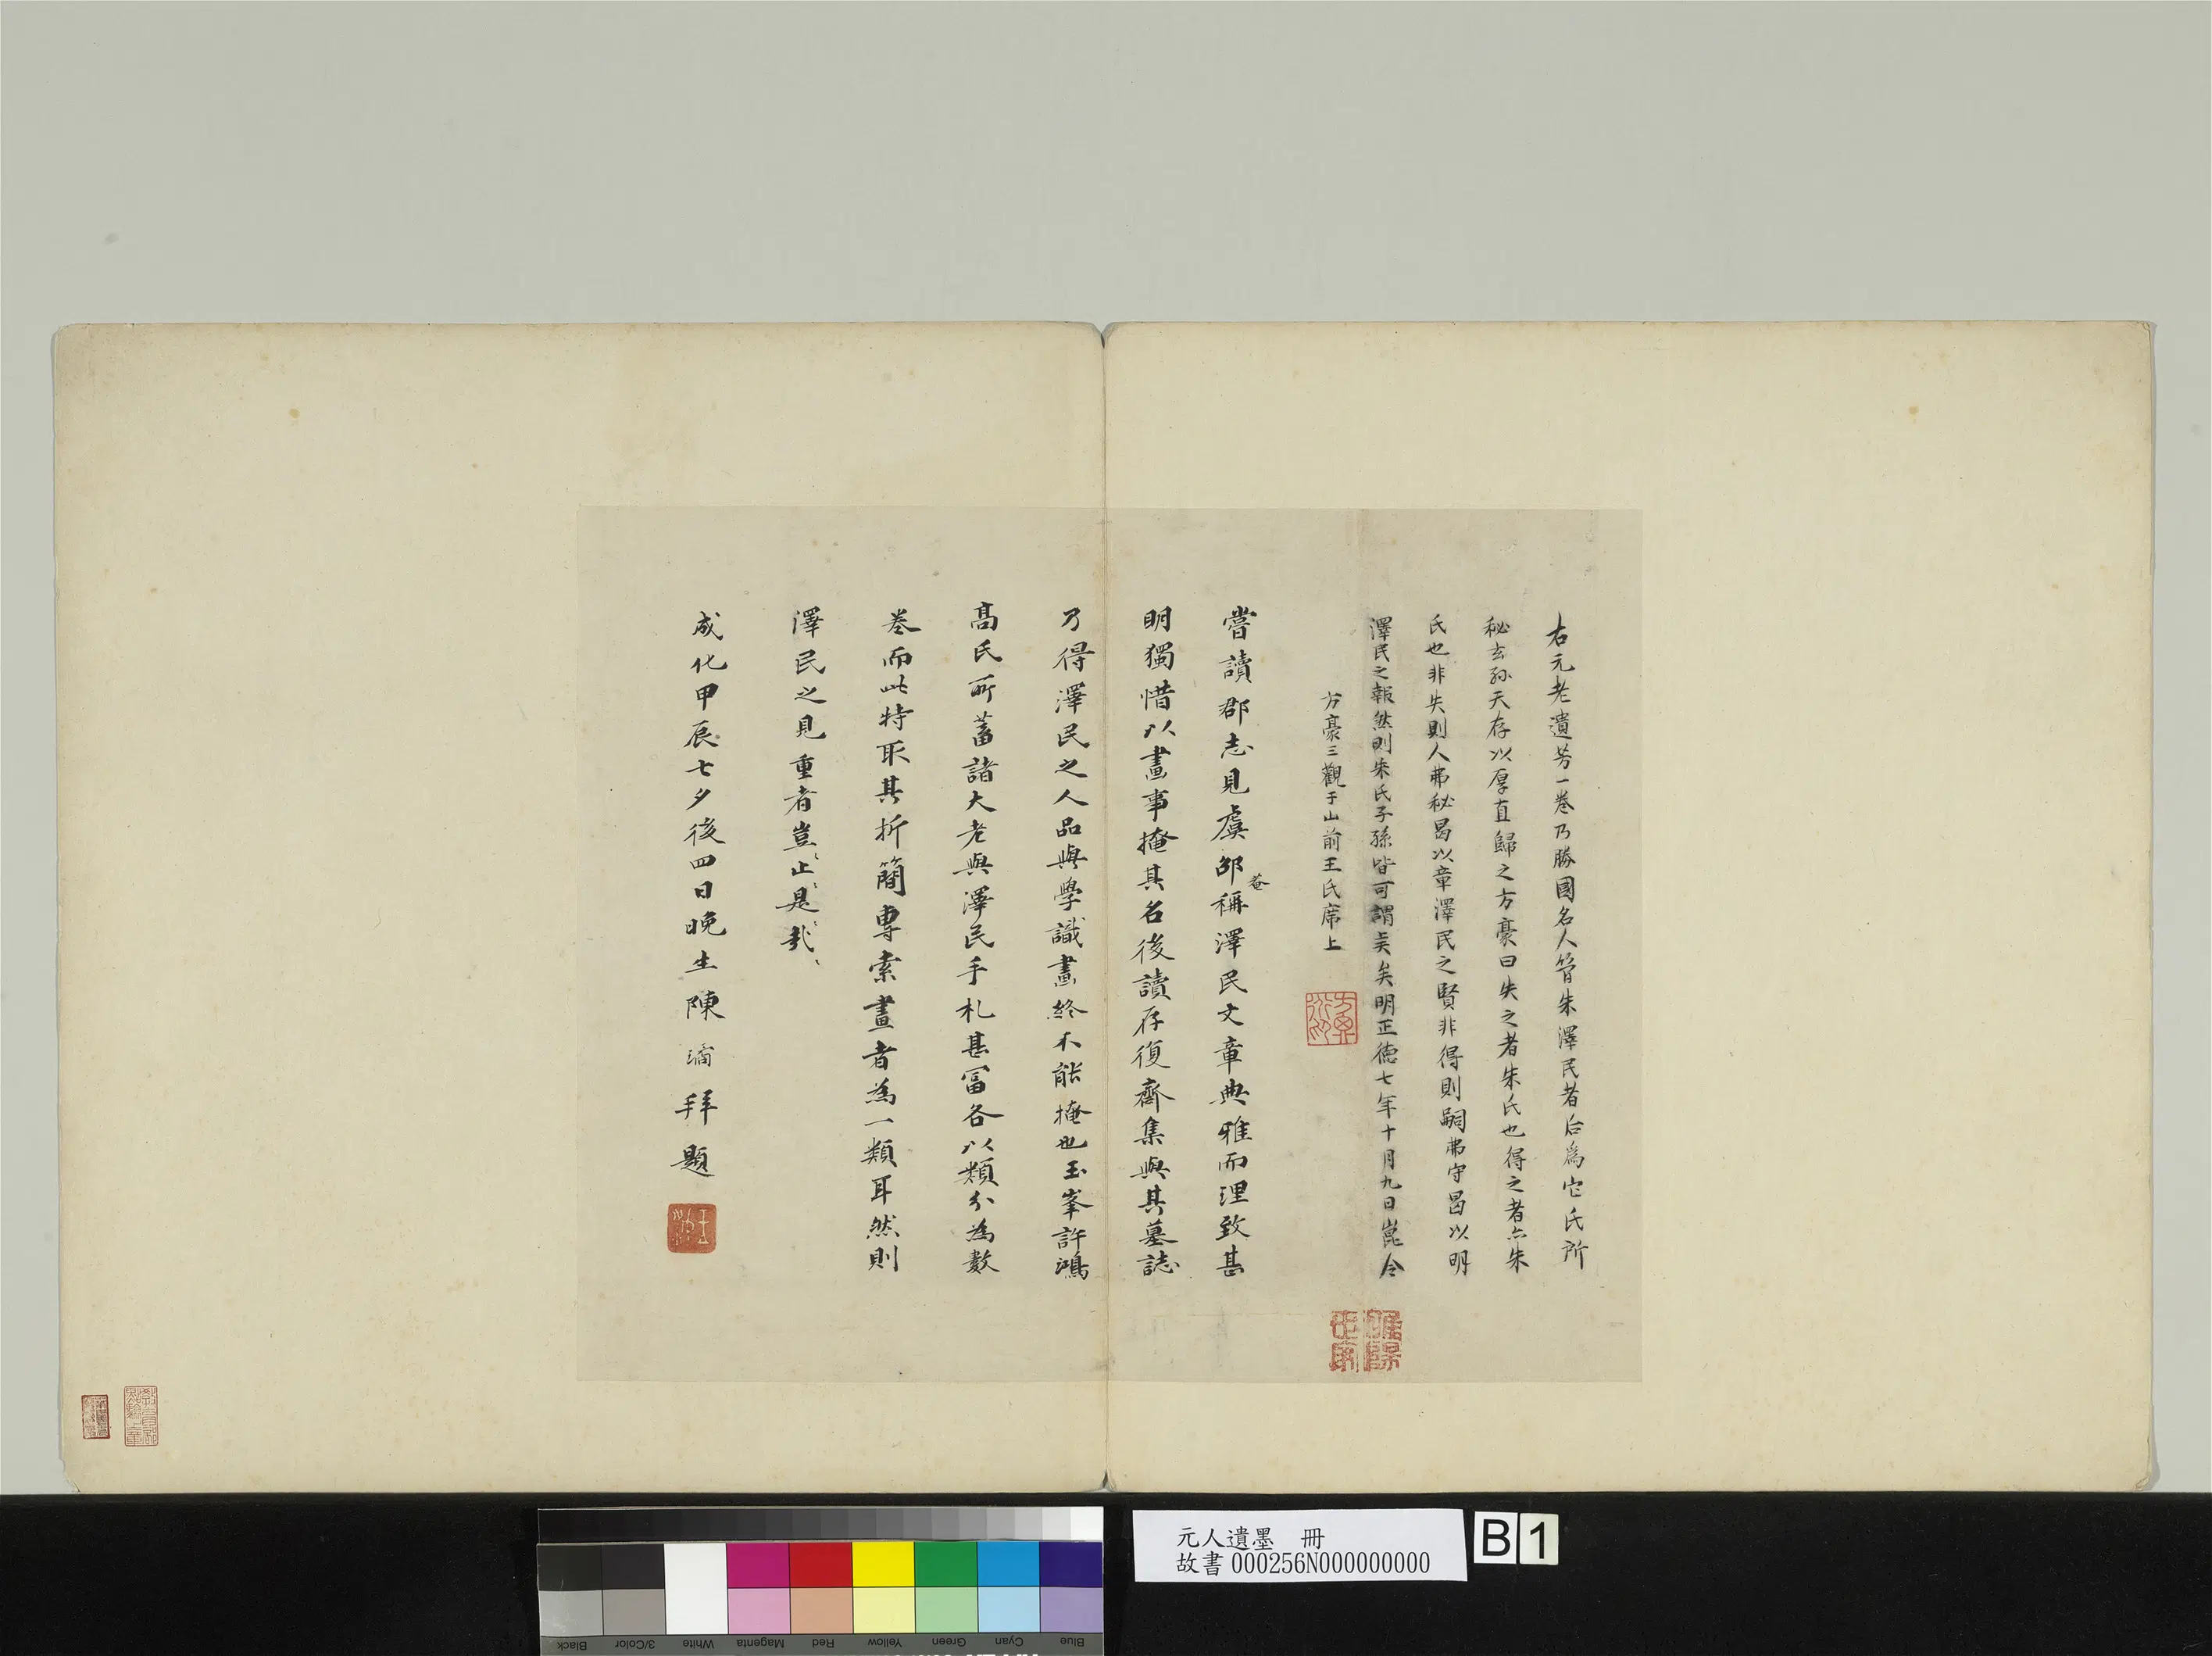 右元老遺芳一卷乃勝國名人簡朱澤民者后為它氏所
秘玄孫天存以厚直歸之方豪曰失之者朱氏也得之者亦朱
氏也非失則人弗秘曷以章澤民之賢非得則嗣弗守曷以明
澤民之報然則朱氏子孫皆可謂矣矣明正德七年十月九日崑令
方豪三觀于山前王氏席上
嘗讀郡志見虞邵菴稱澤民文章典雅而理致甚
明獨惜以畫事掩其名後讀存復齋集與其墓誌
乃得澤民之人品與學識畫終不能掩也玉峯許鴻
高氏所蓄諸大老與澤民手札甚富各以類分為數
卷而此特取其折簡專索畫者為一類耳然則
澤民之見重者豈止是哉
成化甲辰七夕後四日晚生陳 拜題
元人遺墨 冊
故書000256N000000000
B1
Black
3/Color
White
Magenta
Red
Yellow
Green
Cyan
Blue